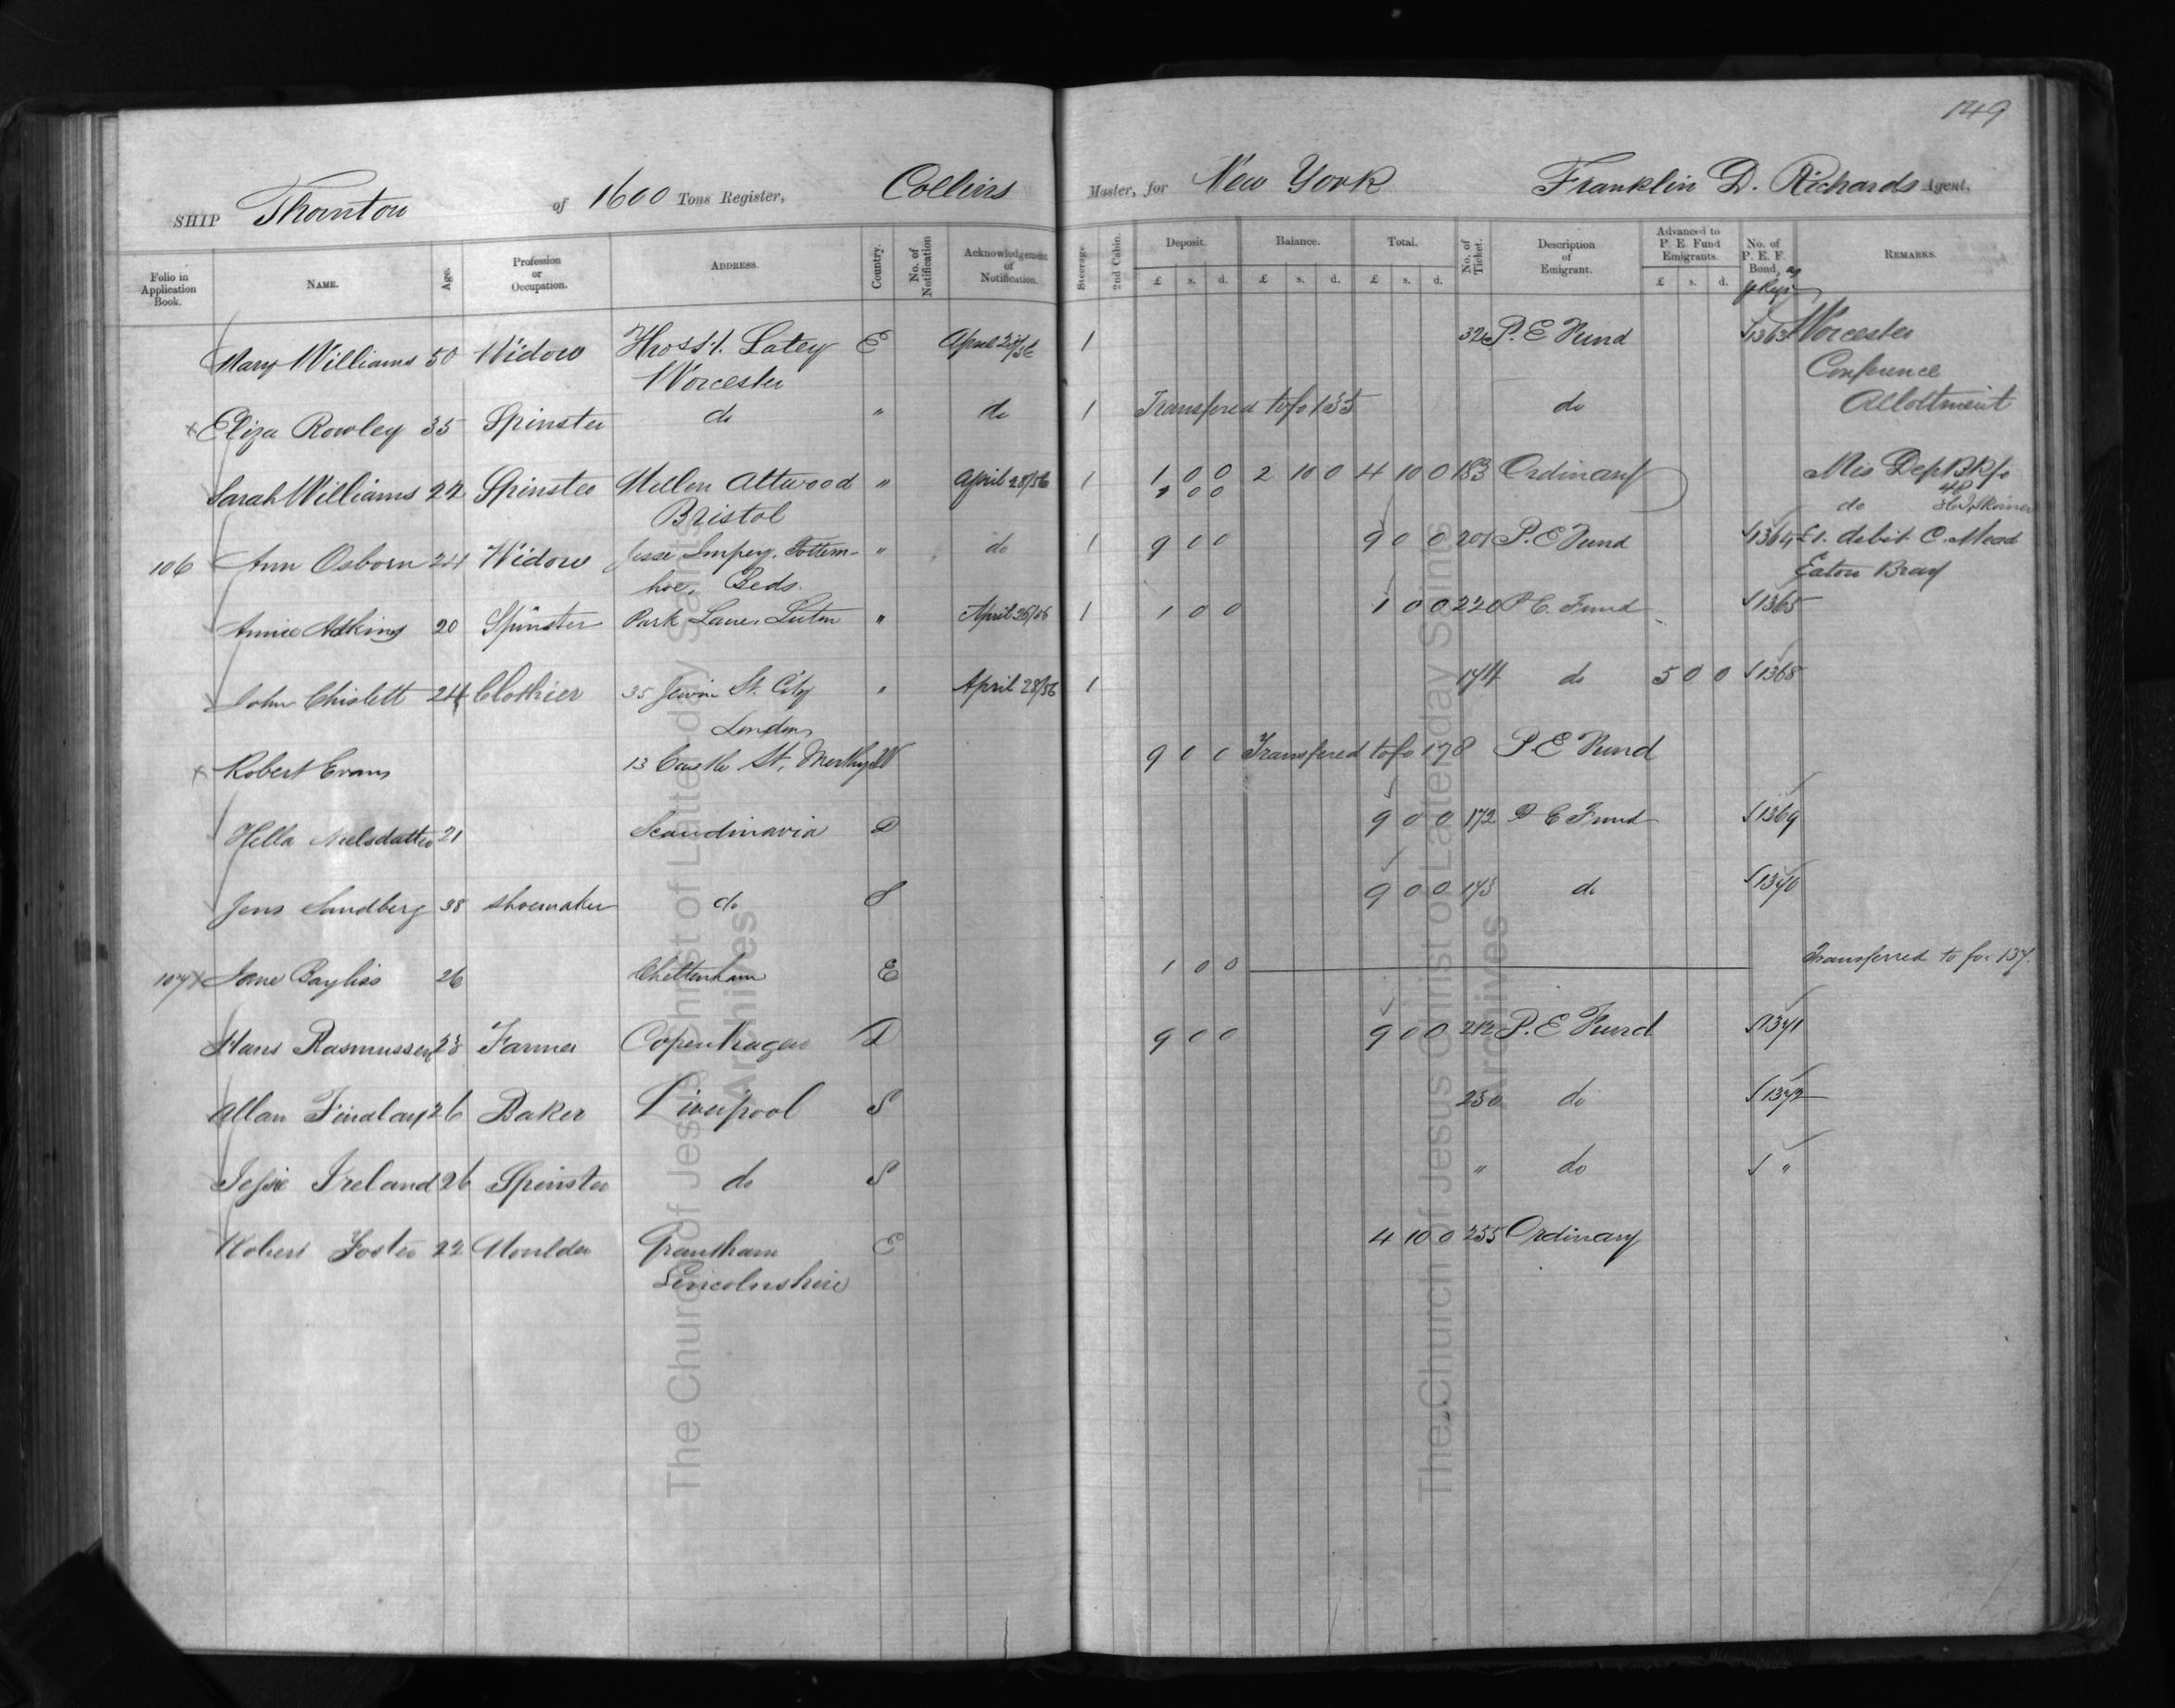 149
SHIP Thornton of 1600 Tons Register, Collins Master, for New York Franklin D. Richards Agent.
Folio in Application Book. NAME. Age. Profession or Occupation. ADDRESS. Country. No. of Notification Acknowledgement of Notification. Steerage. 2nd Cabin. Deposit. £ s. d. Balance. £ s. d. Total. £ s. d. No. of Ticket. Description of Emigrant. Advanced to P. E. Fund Emigrants. £ s. d. No. of P. E. F. Bond, REMARKS.
Mary Williams 50 Widow Latey E April 1 P. E Fund 1363 Worcester
Worcester Conference
x Eliza Rowley 35 Spinster do " do 1 Transfered to fo 135 do Allottment
Sarah Williams 22 Spinster Attwood " April 28/56 1 1 0 0 2 10 0 4 10 0 183 Ordinary
1 0 0
Bristol do
106 Ann Osborn 24 Widow Jesse Impey, Tottern- " do 9 0 0 9 0 0 201 P. E Fund 1364 £1. debit C. Mead
hoe, Beds. Eaton Bray
Annie Adkins 20 Spinster Park Lane, Luton " April 26/56 1 1 0 0 1 0 0 220 P E. Fund 1365
John Chislett 24 Clothier 35 Jewin St. City " April 28/56 1 174 do 5 0 0 1368
London
x Robert Evans 13 Castle St, Merthyr W 9 0 0 Transfered to fo 178 P E Fund
Hella Nielsdatter 21 Scandinavia D 9 0 0 172 P E Fund 1369
Jens Sandberg 38 Shoemaker do S 9 0 0 173 do 1370
107 x Jane Bayliss 26 Cheltenham E 1 0 0 Transferred to fo. 137.
Hans Rasmussen 28 Farmer Copenhagen D 9 0 0 9 0 0 212 P. E Fund 1371
Allan Findlay 26 Baker Liverpool S 250 do 1372
Jessie Ireland 26 Spinster do S " do "
Robert Foster 22 Moulder Grantham E 4 10 0 255 Ordinary
Lincolnshire
The Church of Jesus Christ of Latter-day Saints
Archives
The Church of Jesus Christ of Latter-day Saints
Archives